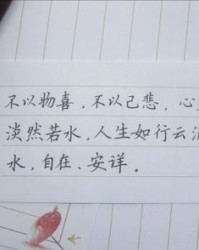 不以物喜，不以己悲，心
淡然若水，人生如行云流
水，自在、安详．